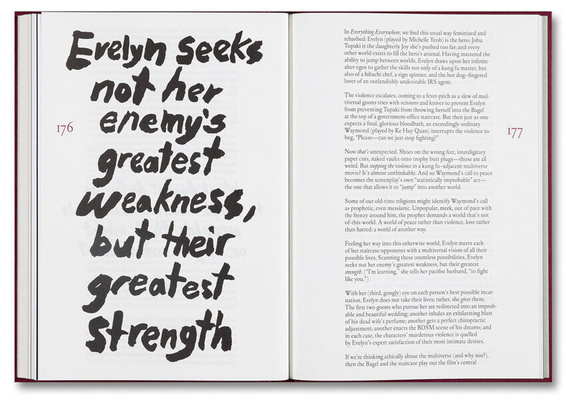 Evelyn seeks
not her
enemy's
greatest
weakness,
but their
greatest
strength
176
In Everything Everywhere, we find this usual way feminized and
rehashed: Evelyn (played by Michelle Yeoh) is the hero; Jobu
Tupaki is the daughterly Joy she's pushed too far; and every
other world exists to fill the hero's arsenal. Having mastered the
ability to jump between worlds, Evelyn draws upon her infinite
alter egos to gather the skills not only of a kung fu master, but
also of a hibachi chef, a sign spinner, and the hot dog–fingered
lover of an outlandishly undesirable IRS agent.
The violence escalates, coming to a fever-pitch as a slew of mul-
tiversal goons tries with scissors and knives to prevent Evelyn
from preventing Tupaki from throwing herself into the Bagel
at the top of a government office staircase. But then just as one
expects a final, glorious bloodbath, an exceedingly ordinary
Waymond (played by Ke Huy Quan) interrupts the violence to
beg, "Please—can we just stop fighting?"
Now that's unexpected. Shoes on the wrong feet, interdigitary
paper cuts, naked vaults onto trophy butt plugs—those are all
weird. But stopping the violence in a kung fu–adjacent multiverse
movie? It's almost unthinkable. And so Waymond's call to peace
becomes the screenplay's own "statistically improbable" act—
the one that allows it to "jump" into another world.
Some of our old-time religions might identify Waymond's call
as prophetic, even messianic. Unpopular, meek, out of pace with
the frenzy around him, the prophet demands a world that's not
of-this-world. A world of peace rather than violence, love rather
than hatred: a world of another way.
Feeling her way into this otherwise world, Evelyn meets each
of her staircase opponents with a multiversal vision of all their
possible lives. Scanning these countless possibilities, Evelyn
seeks not her enemy's greatest weakness, but their greatest
strength. ("I'm learning," she tells her pacifist husband, "to fight
like you.")
With her (third, googly) eye on each person's best possible incar-
nation, Evelyn does not take their lives; rather, she gives them.
The first two goons who pursue her are redirected into an improb-
able and beautiful wedding; another inhales an exhilarating blast
of his dead wife's perfume; another gets a perfect chiropractic
adjustment; another enacts the BDSM scene of his dreams; and
in each case, the characters' murderous violence is quelled
by Evelyn's expert satisfaction of their most intimate desires.
If we're thinking ethically about the multiverse (and why not?),
then the Bagel and the staircase play out the film's central
177